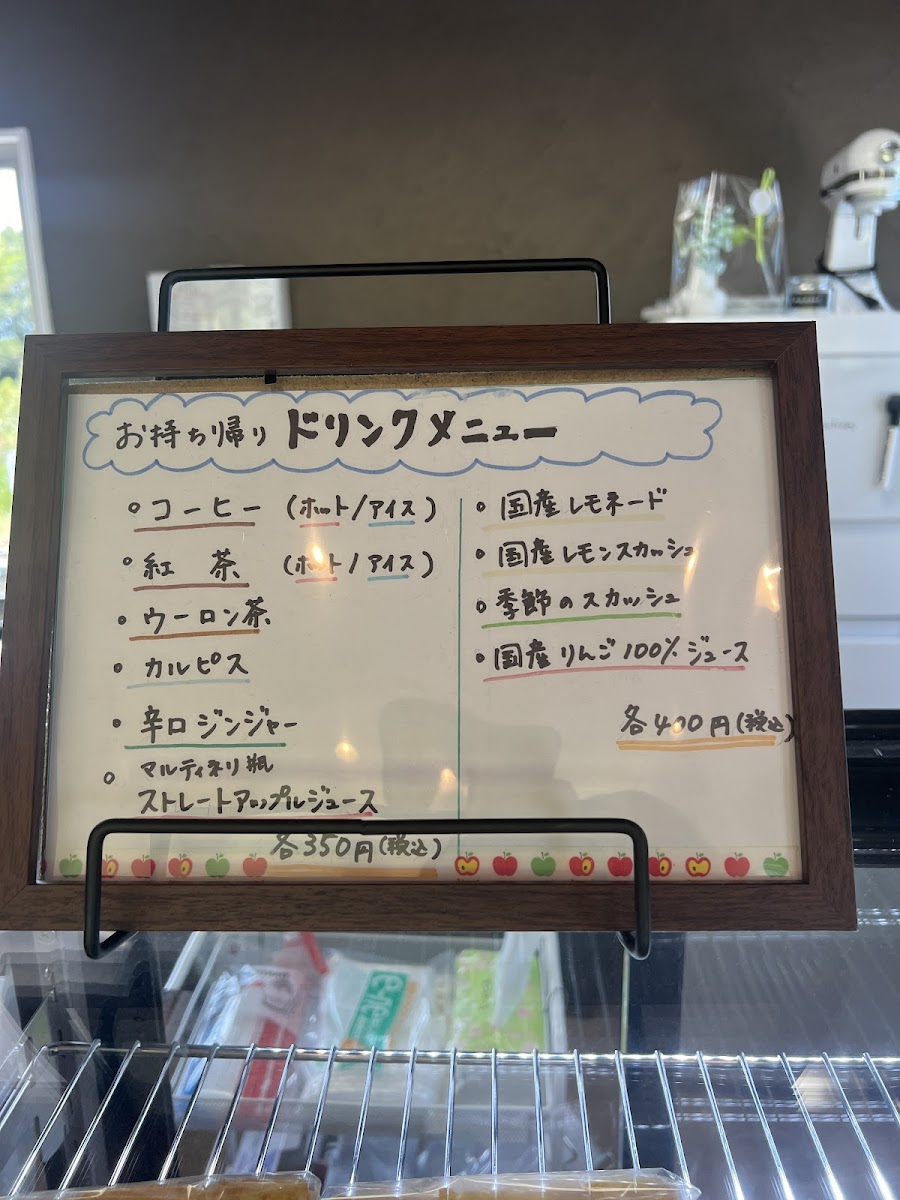 お持ち帰り ドリンクメニュー
○ コーヒー (ホット/アイス)
○ 紅 茶 (ホット/アイス)
○ ウーロン茶
○ カルピス
○ 辛口 ジンジャー
○ マルティネリ 瓶
ストレートアップルジュース
各350円(税込)
○ 国産 レモネード
○ 国産 レモンスカッシュ
○ 季節のスカッシュ
○ 国産 りんご 100% ジュース
各400円(税込)